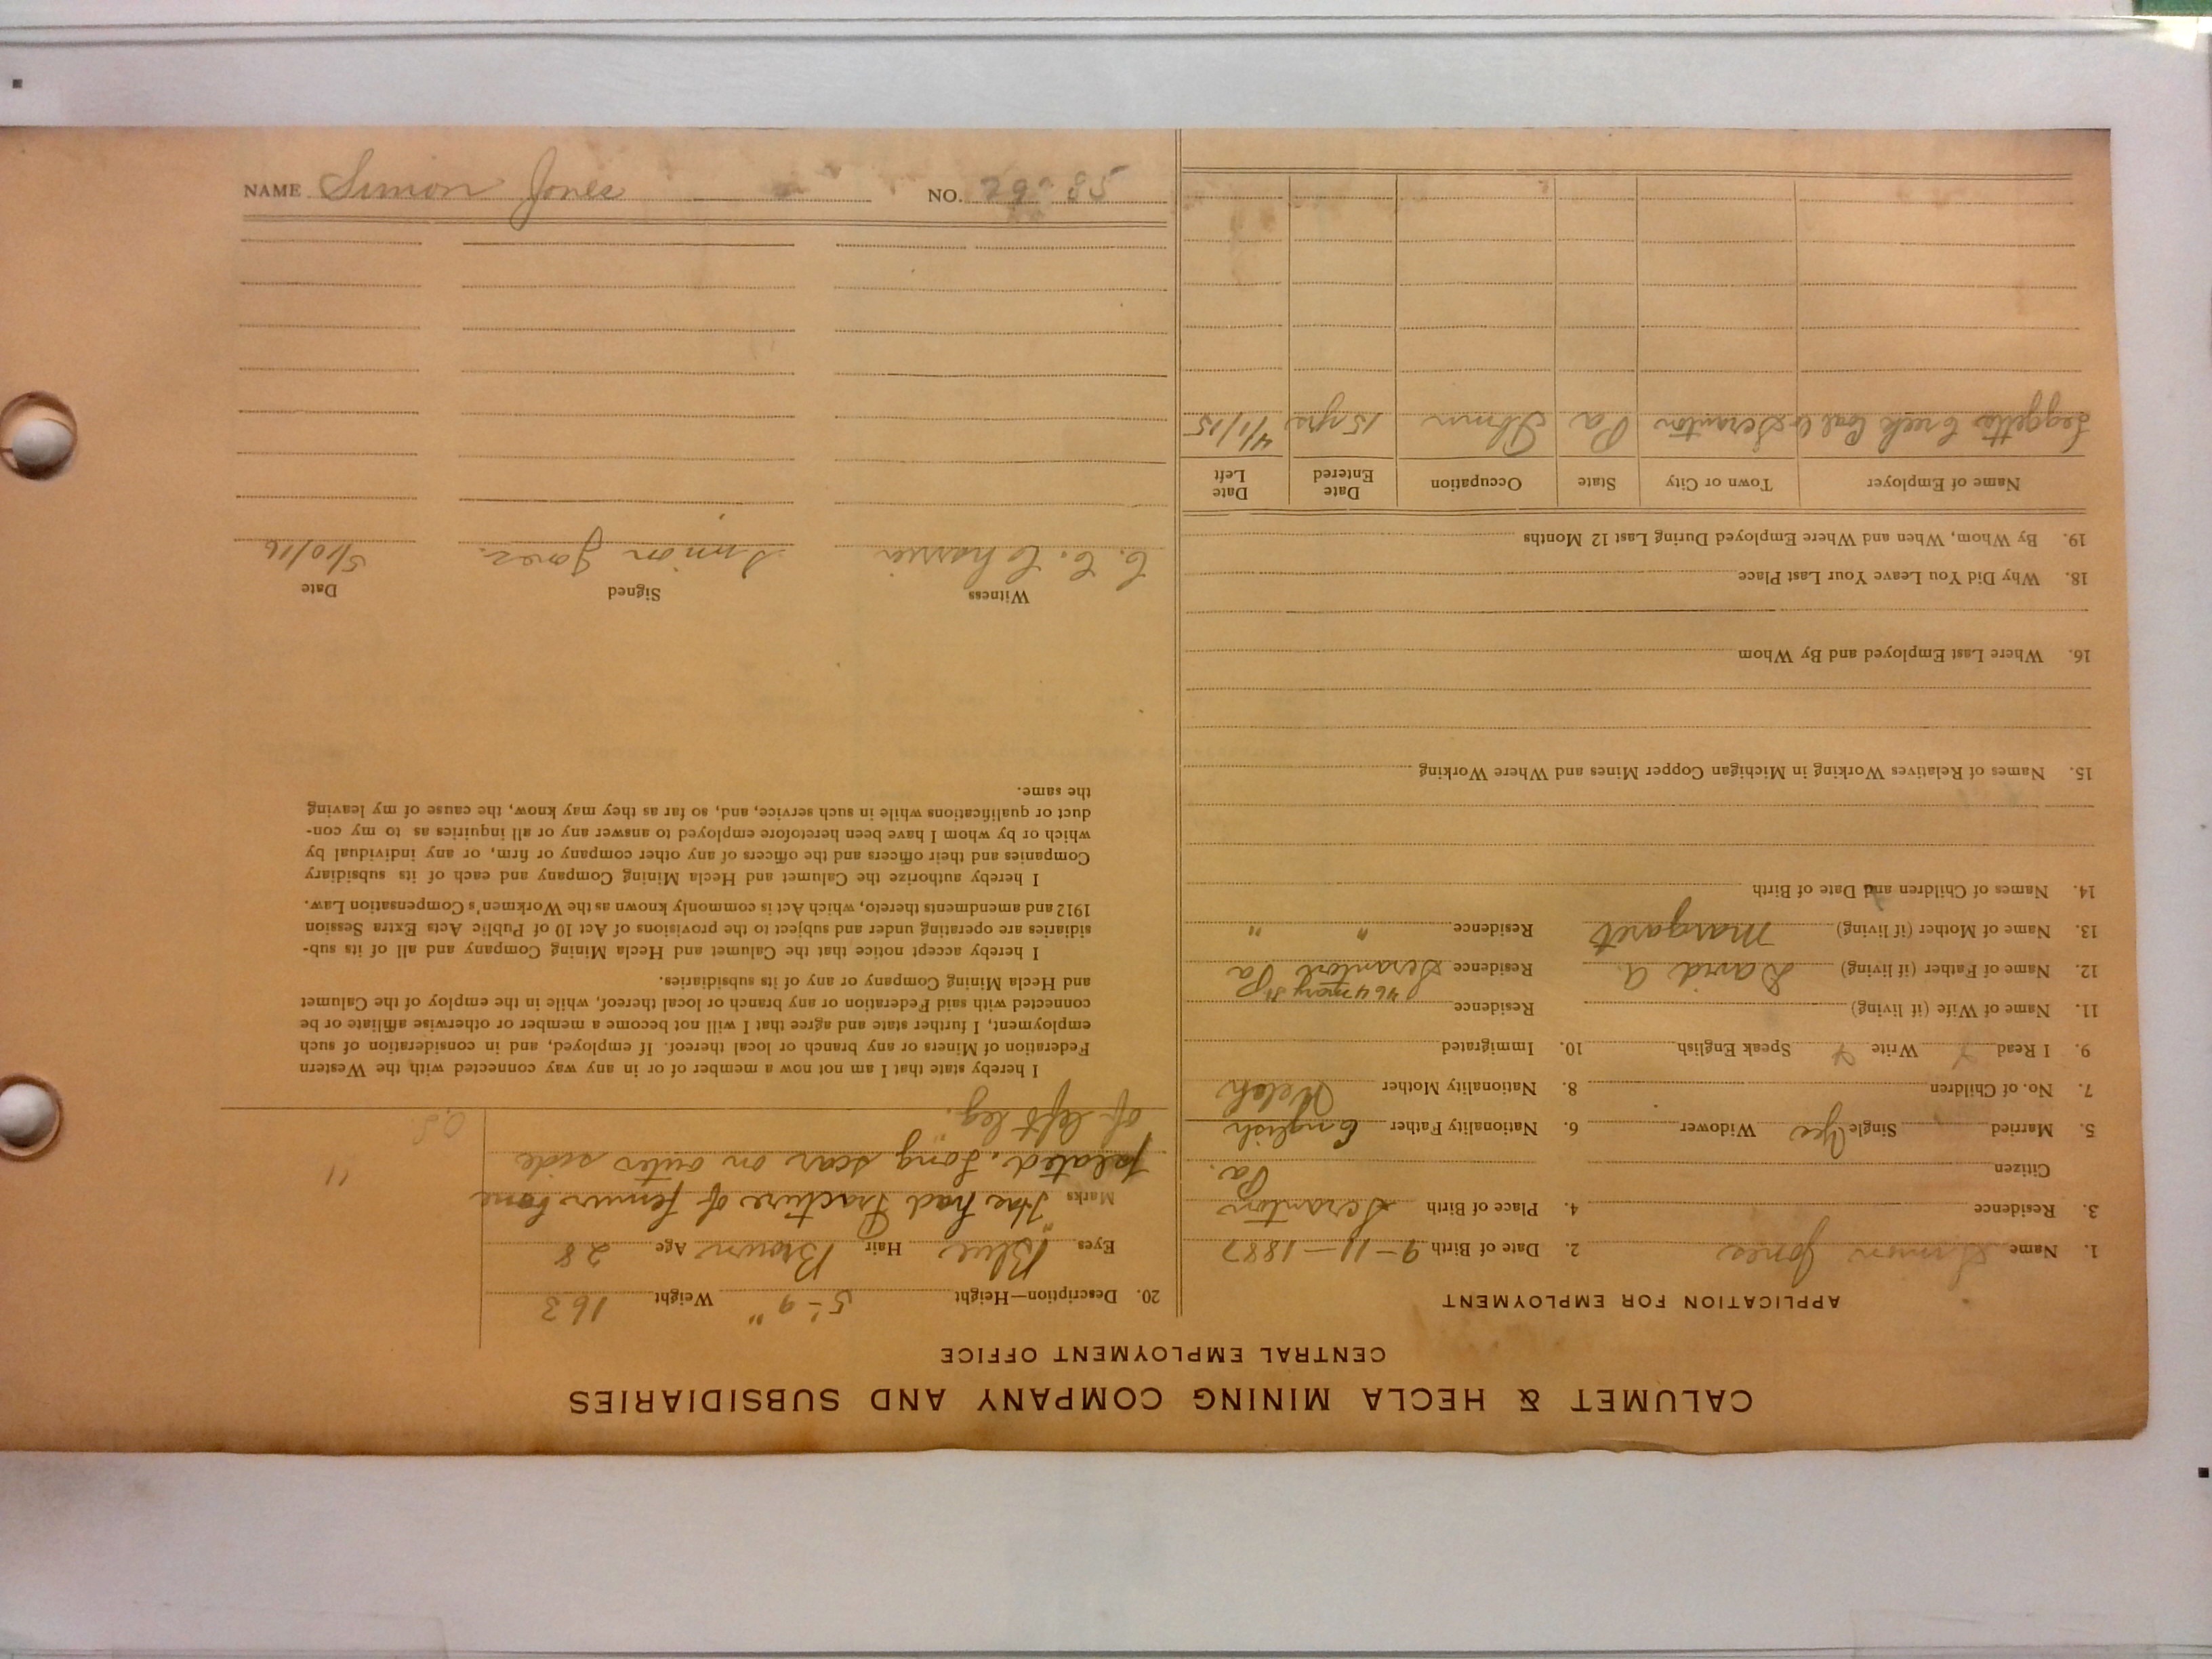 CALUMET & HECLA MINING COMPANY AND SUBSIDIARIES
CENTRAL EMPLOYMENT OFFICE
APPLICATION FOR EMPLOYMENT
1. Name Simon Jones 2. Date of Birth 9-11-1887
3. Residence 4. Place of Birth Scranton
Citizen Pa.
5. Married Single Yes Widower 6. Nationality Father English
7. No. of Children 8. Nationality Mother Welsh
9. I Read Write Speak English 10. Immigrated
11. Name of Wife (if living) Residence
464 Mary St
12. Name of Father (if living) David A. Residence Scranton Pa
13. Name of Mother (if living) Margaret Residence " "
14. Names of Children and Date of Birth
15. Names of Relatives Working in Michigan Copper Mines and Where Working
16. Where Last Employed and By Whom
18. Why Did You Leave Your Last Place
19. By Whom, When and Where Employed During Last 12 Months
Name of Employer Town or City State Occupation Date Entered Date Left
Leggetts Creek Coal Co Scranton Pa 15 yrs 4/1/15
20. Description—Height 5'-9" Weight 163
Eyes Blue Hair Brown Age 28
Marks He had fracture of femur bone
plated. Long scar on outer side
of left leg.
11
I hereby state that I am not now a member of or in any way connected with the Western
Federation of Miners or any branch or local thereof. If employed, and in consideration of such
employment, I further state and agree that I will not become a member or otherwise affiliate or be
connected with said Federation or any branch or local thereof, while in the employ of the Calumet
and Hecla Mining Company or any of its subsidiaries.
I hereby accept notice that the Calumet and Hecla Mining Company and all of its sub-
sidiaries are operating under and subject to the provisions of Act 10 of Public Acts Extra Session
1912 and amendments thereto, which Act is commonly known as the Workmen's Compensation Law.
I hereby authorize the Calumet and Hecla Mining Company and each of its subsidiary
Companies and their officers and the officers of any other company or firm, or any individual by
which or by whom I have been heretofore employed to answer any or all inquiries as to my con-
duct or qualifications while in such service, and, so far as they may know, the cause of my leaving
the same.
Witness Signed Date
Simon Jones. 5/10/16
NAME Simon Jones NO. 29 85